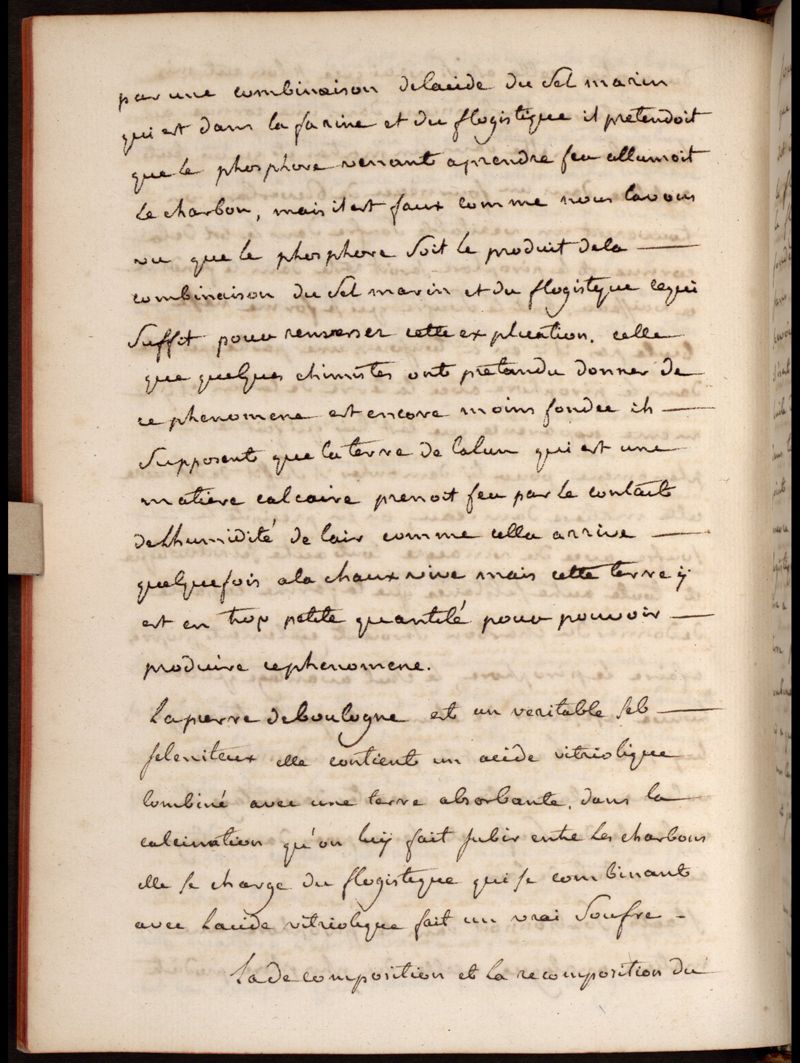 par une combinaison delacide du Sel marin
qui est dans la farine et du flogistique il pretendoit
que le phosphore venant aprendre feu allumoit
le charbon, mais il est faux comme nous lavons
vu que le phosphore soit le produit dela —
combinaison du Sel marin et du flogistique cequi
Suffit pour renverser cette explication. celle
que quelques chimistes ont pretandu donner de
ce phenomene est encore moins fondée ils —
Supposent que la terre de lalun qui est une
matiere calcaire prenoit feu par le contact
del'humidité de lair comme cella arrive —
quelquefois ala chaux vive mais cette terre ÿ
est en trop petite quantité pour pouvoir —
produire cephenomene.
Lapierre deboulogne est un veritable sel —
seleniteux elle contient un acide vitriolique
Combiné avec une terre absorbante. dans la
calcination qu'on luÿ fait subir entre les charbons
elle se charge du flogistique qui se combinant
avec Lacide vitriolique fait un vrai Soufre -
La de composition et la recomposition du